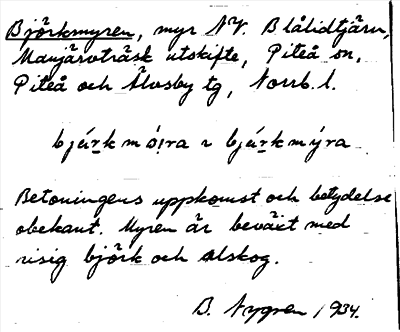 Björkmyren, myr NV. Blålidtjärn,
Manjärvträsk utskifte, Piteå sn,
Piteå och Älvsby tg, Norrb. l.
bjárk mọ́ra ɿ bjárkmýra
Betoningens uppkomst och betydelse
obekant. Myren är beväxt med
risig björk och alskog.
B. Nygren 1934.